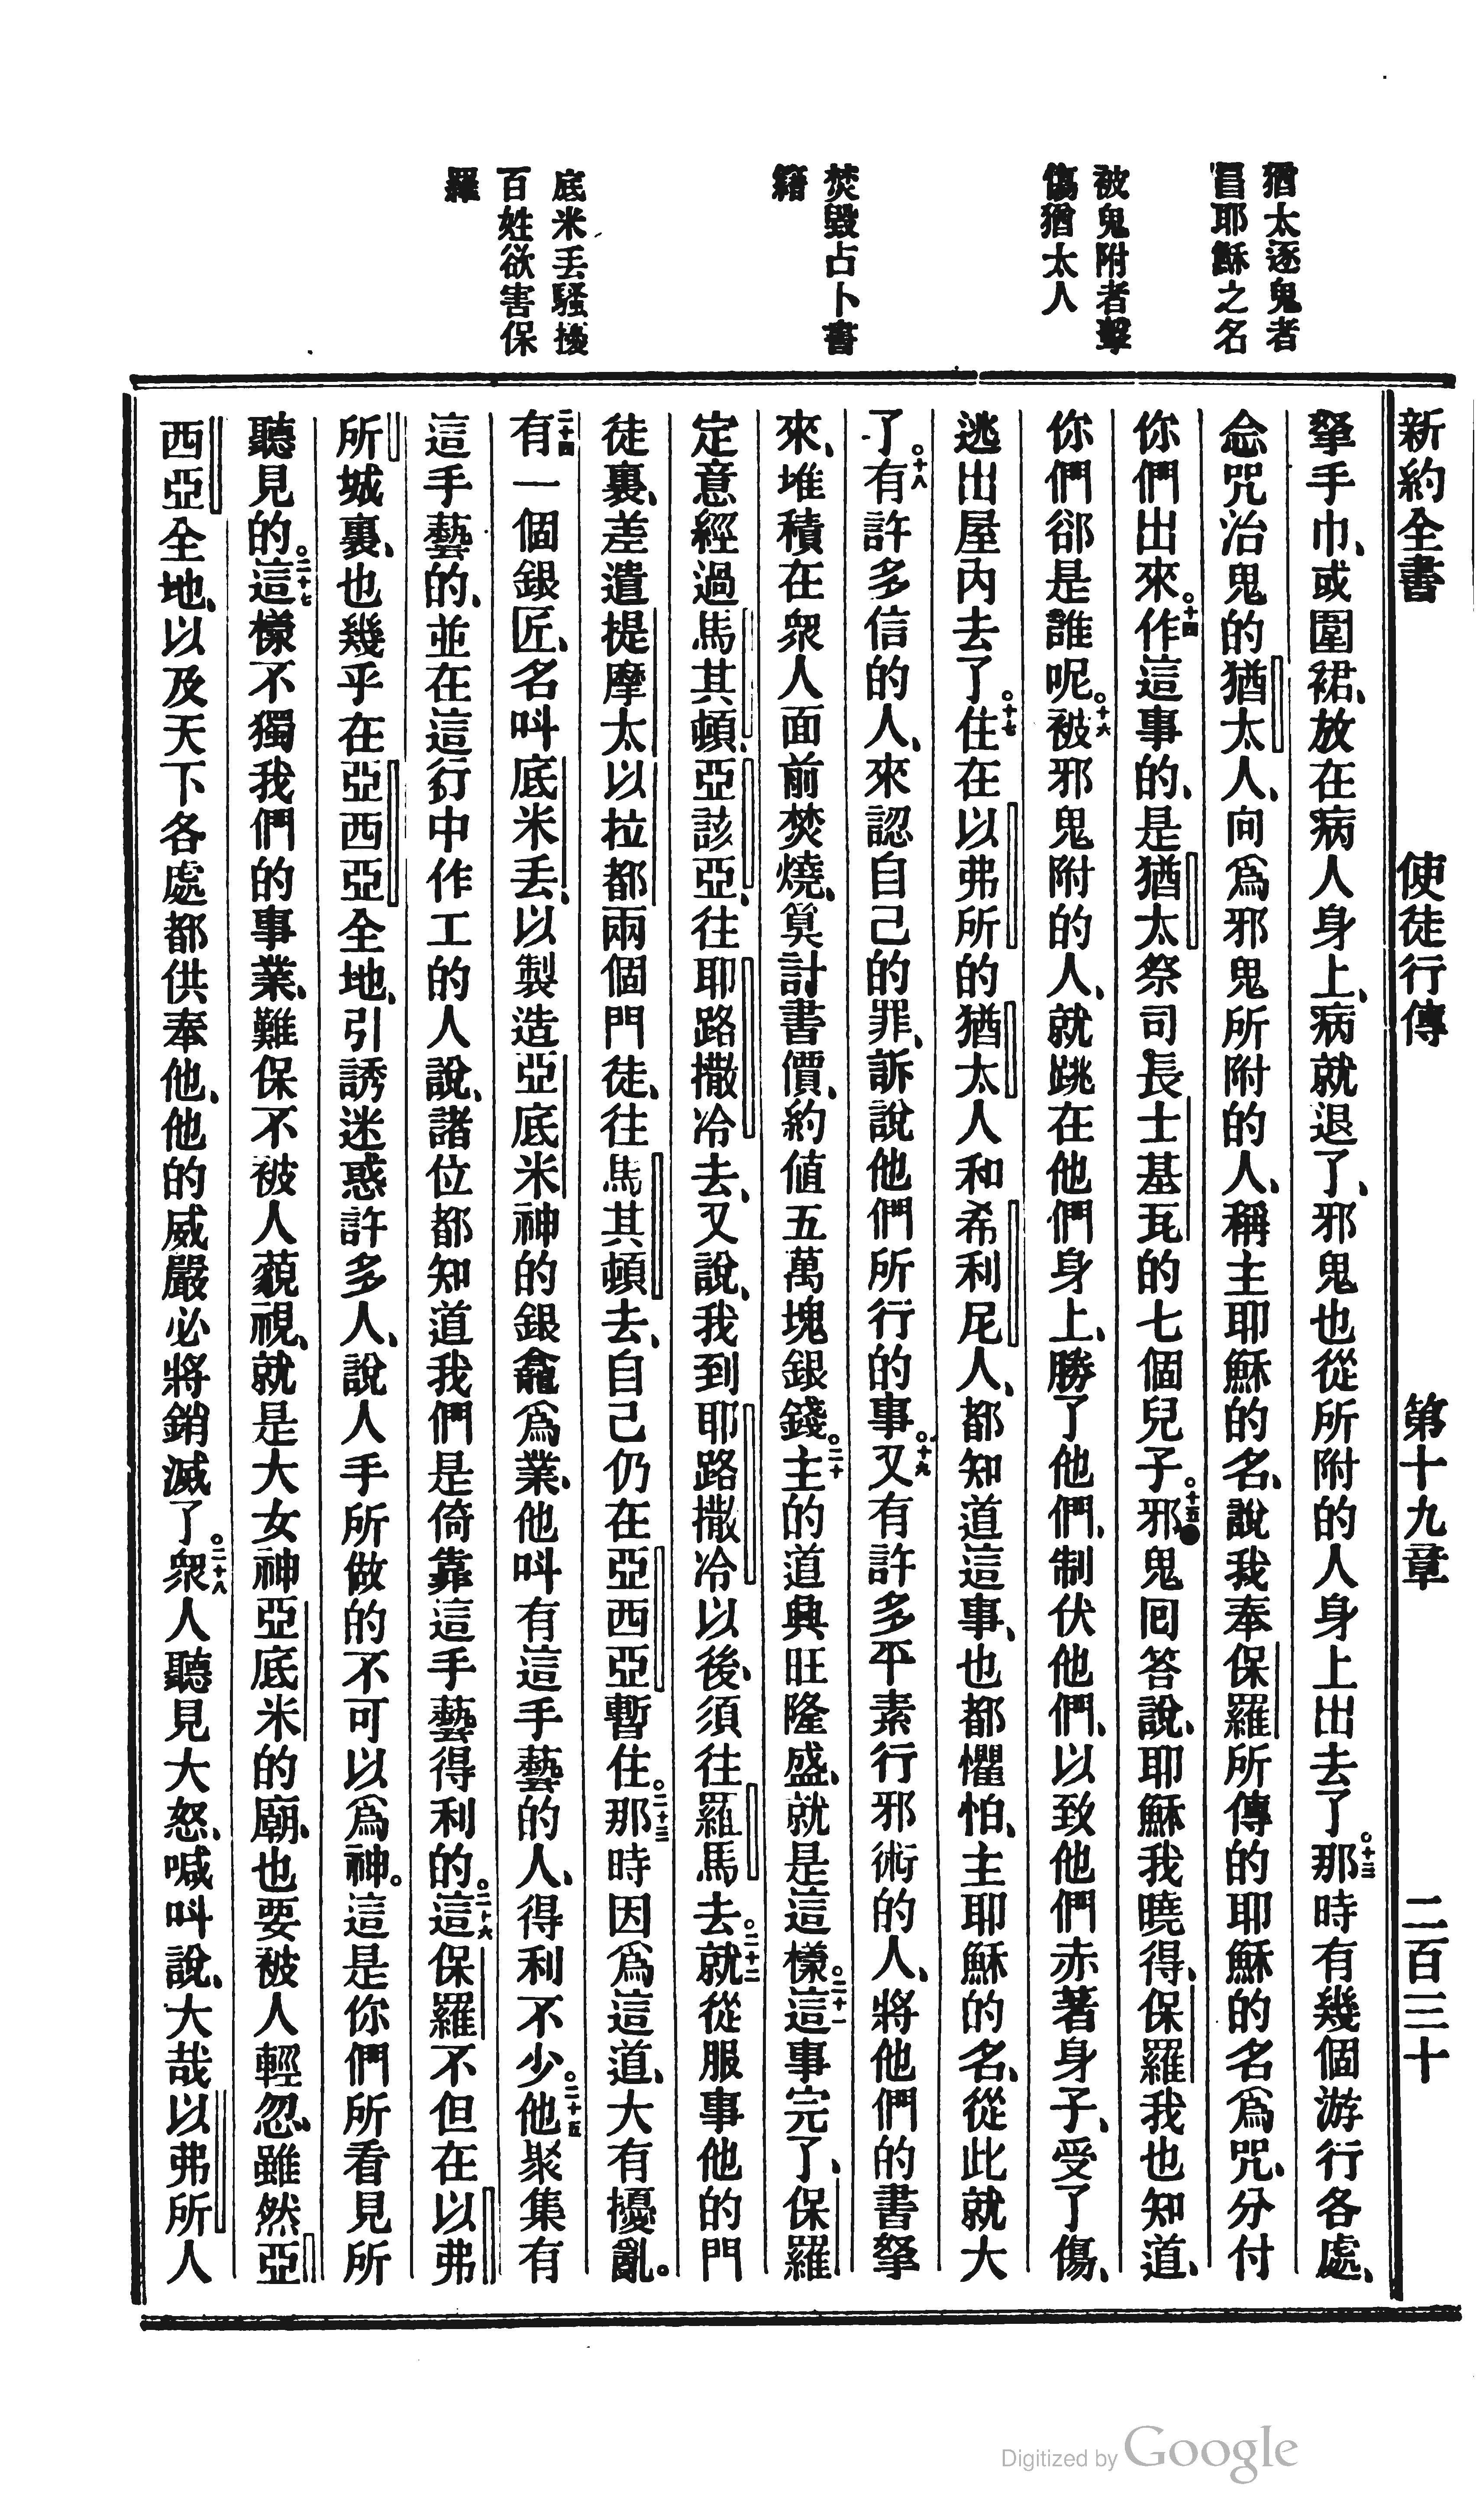 新約全書 使徒行傳 第十九章 二百三十
猶太逐鬼者
冒耶穌之名
被鬼附者擊
傷猶太人
焚毀占卜書
籍
底米丟騷擾
百姓欲害保
羅
拏手巾、或圍裙、放在病人身上、病就退了、邪鬼也從所附的人身上出去了。十三那時有幾個游行各處、
念咒治鬼的猶太人、向爲邪鬼所附的人、稱主耶穌的名、說我奉保羅所傳的耶穌的名爲咒、分付
你們出來。十四作這事的、是猶太祭司長士基瓦的七個兒子。十五邪鬼囘答說、耶穌我曉得、保羅我也知道、
你們卻是誰呢。十六被邪鬼附的人、就跳在他們身上、勝了他們、制伏他們、以致他們赤著身子、受了傷、
逃出屋內去了。十七住在以弗所的猶太人和希利尼人、都知道這事、也都懼怕、主耶穌的名、從此就大
了。十八有許多信的人、來認自己的罪、訴說他們所行的事。十九又有許多平素行邪術的人、將他們的書拏
來、堆積在衆人面前焚燒、算計書價、約値五萬塊銀錢。二十主的道興旺隆盛、就是這樣。二十一這事完了、保羅
定意經過馬其頓、亞該亞、往耶路撒冷去、又說、我到耶路撒冷以後、須往羅馬去。二十二就從服事他的門
徒裏、差遣提摩太以拉都兩個門徒、往馬其頓去、自己仍在亞西亞暫住。二十三那時因爲這道、大有擾亂。
二十四有一個銀匠、名叫底米丟、以製造亞底米神的銀龕爲業、他叫有這手藝的人、得利不少。二十五他聚集有
這手藝的、並在這行中作工的人說、諸位都知道我們是倚靠這手藝得利的。二十六這保羅不但在以弗
所城裏、也幾乎在亞西亞全地、引誘迷惑許多人、說人手所做的不可以爲神。這是你們所看見所
聽見的。二十七這樣不獨我們的事業、難保不被人藐視、就是大女神亞底米的廟、也要被人輕忽、雖然亞
西亞全地、以及天下各處都供奉他、他的威嚴必將銷滅了。二十八衆人聽見大怒、喊叫說、大哉以弗所人
Digitized by Google